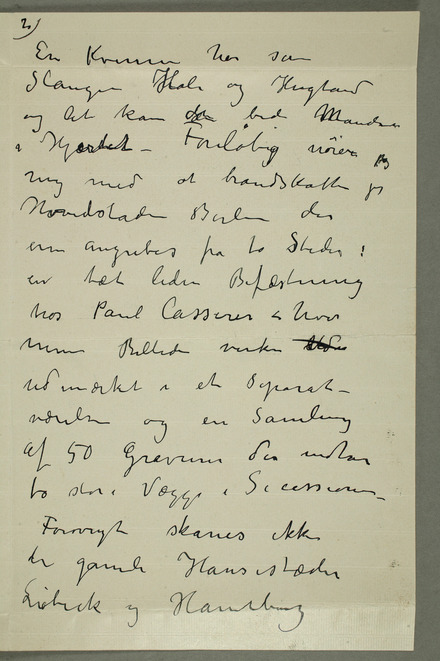 2)
En Kvinne har som
Slangen Hale og Hugtand
og det kan bide Manden
i Hjertet – Foreløbig nøier jeg
mig med at brandskatte
Hovedstaden Berlin der
angribes fra to Steder:
en tæt liden Befæstning
hos Paul Cassirer hvor
mine Billeder virker
udmærket i et Separat-
værelse og en Samling
af 50 Gravurer der indtar
to store Vægge i Secessionen
Forøvrigt skånes ikke
de gamle Hansestæder
Lübeck og Hamburg